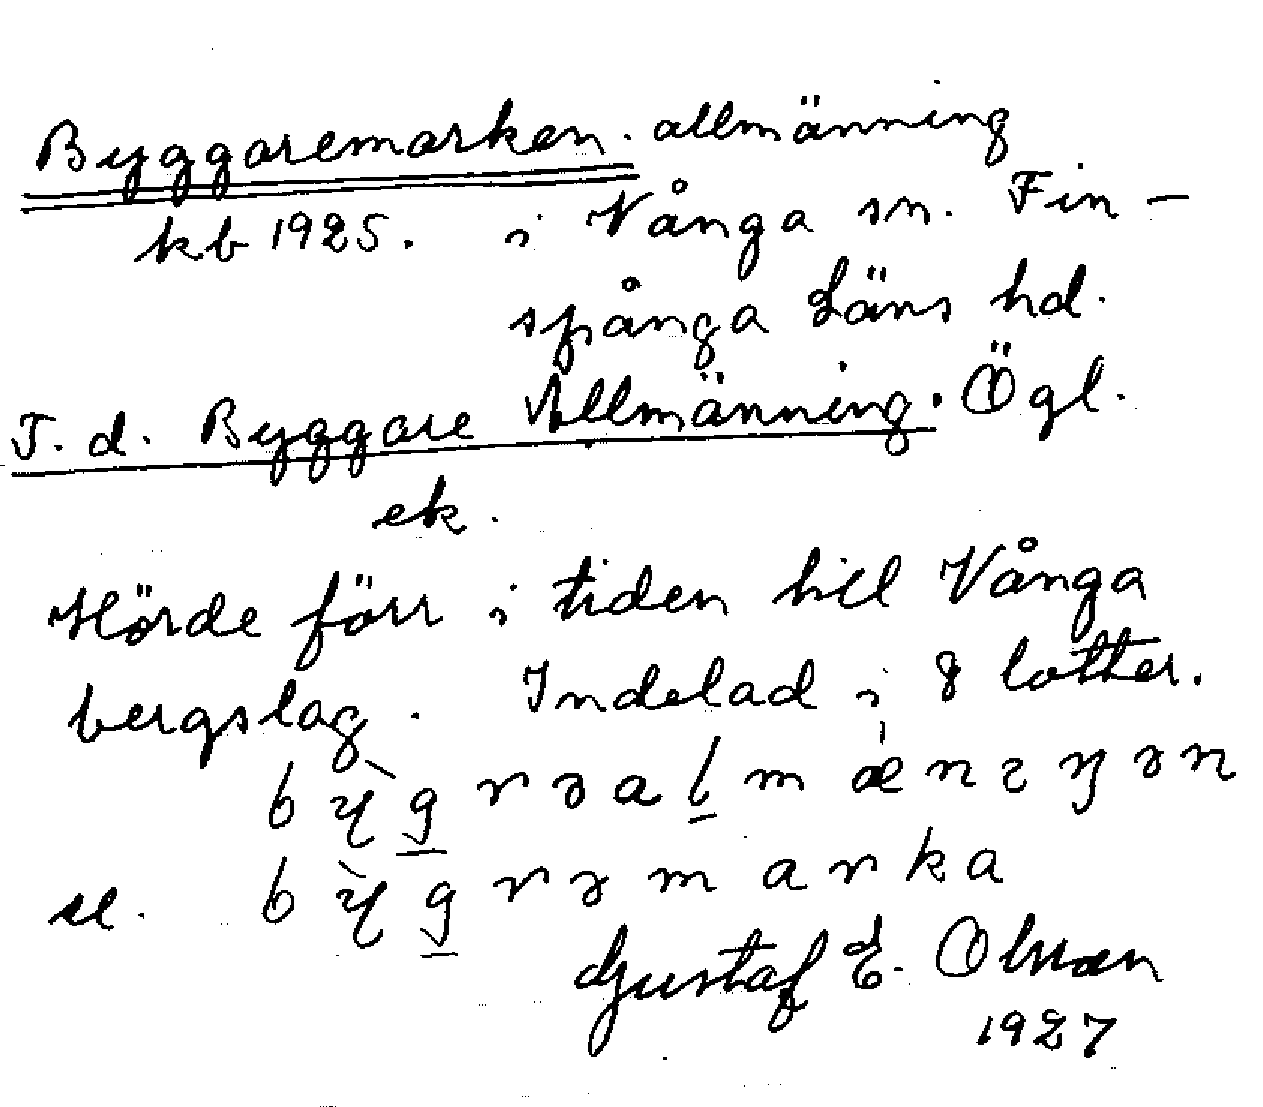 Byggaremarken. allmänning
kb 1925. i Vånga sn. Fin-
spånga Läns hd.
T. d. Byggare Allmänning. Ögl.
ek.
Hörde förr i tiden till Vånga
bergslag. Indelad i 8 lotter.
bỳg̲rəal̲mænɪŋən
el. bỳg̲rəmarka
Gustaf E. Olsson
1927